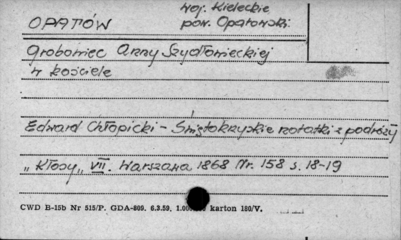 Woj. Kieleckie
OPATÓW pow. Opatowski
Grobowiec Anny Szydłowieckiej
w kościele
Edward Chłopicki - Świętokrzyskie notatki z podróży
"Kłosy" VII. Warszawa 1868 Nr. 158 s. 18-19
CWD B-15b Nr 515/P. GDA-809. 6.3.59. karton 180/V.